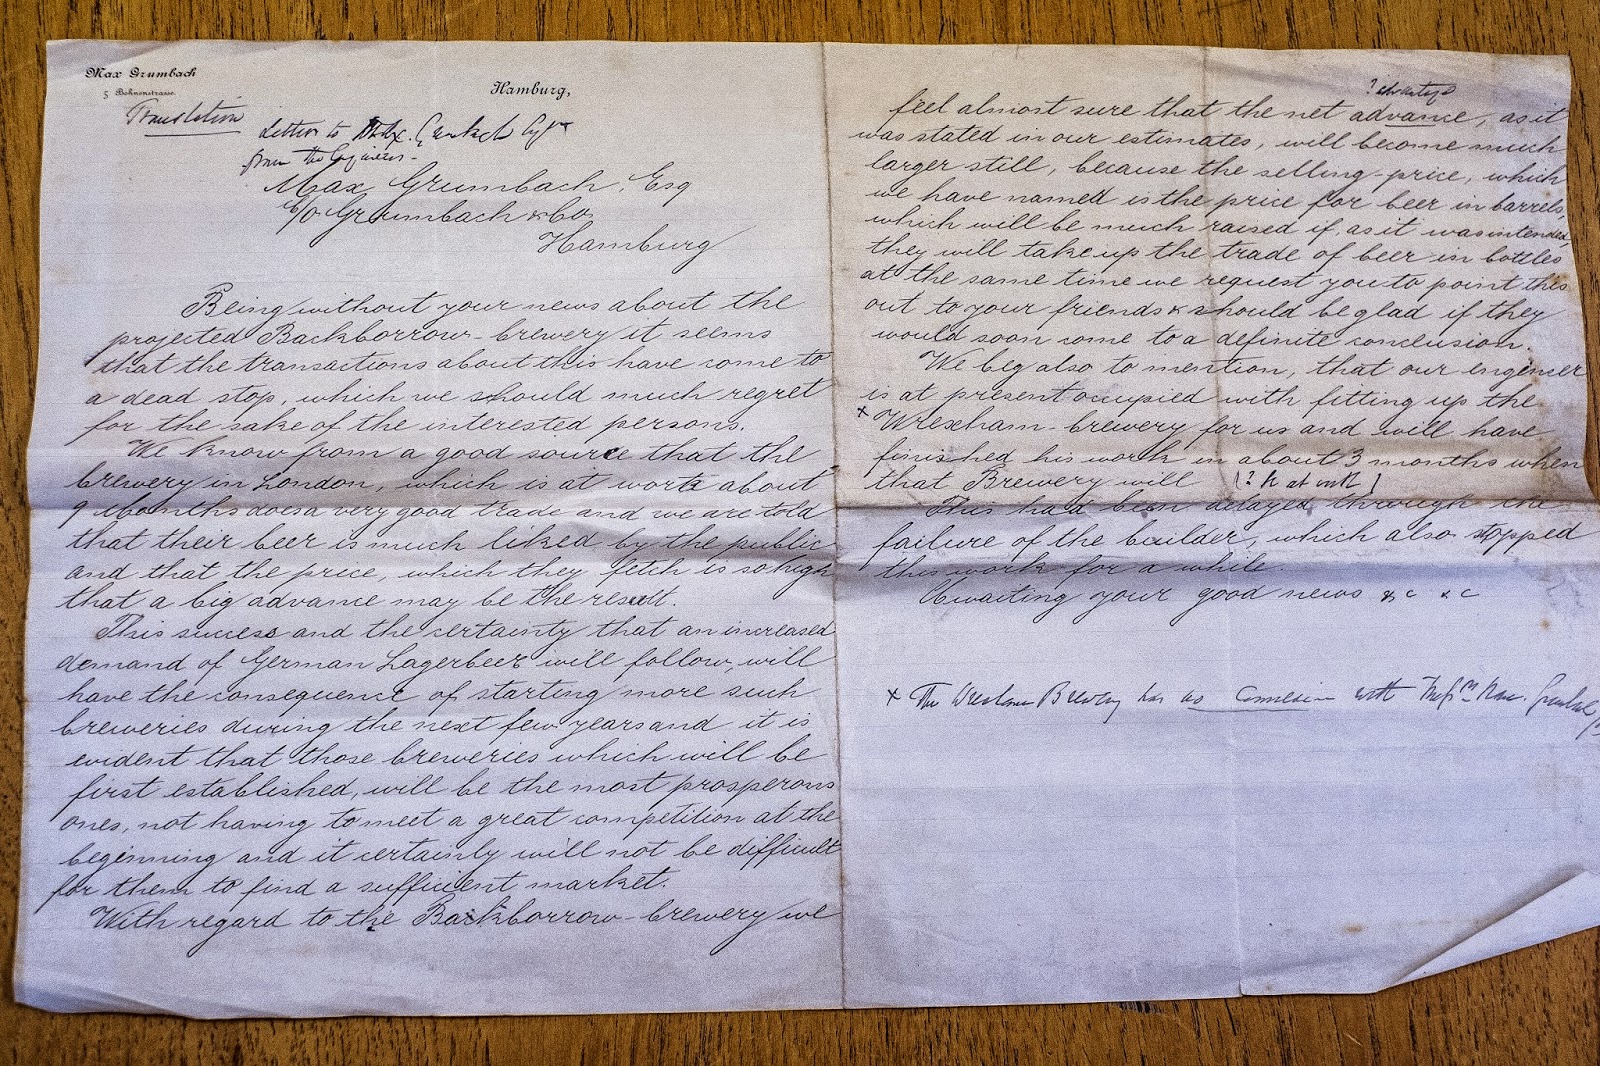 Max Grumbach
5 Bohnenstrasse.
Hamburg,
Translation
Letter to Max. Grumbach Esqre
from the Engineers.-
Max Grumbach, Esq
C/o Grumbach & Co
Hamburg
Being without your news about the
projected Backborrow-brewery it seems
that the transactions about this have come to
a dead stop, which we should much regret
for the sake of the interested persons.
We know from a good source that the
brewery in London, which is at work about
9 Months does a very good trade and we are told
that their beer is much liked by the public
and that the price, which they fetch is so high
that a big advance may be the result.
This success and the certainty that an increased
demand of German Lagerbeer will follow, will
have the consequence of starting more such
breweries during the next few years and it is
evident that those breweries which will be
first established, will be the most prosperous
ones, not having to meet a great competition at the
beginning and it certainly will not be difficult
for them to find a sufficient market.
With regard to the Backborrow-brewery we
feel almost sure that the net advance, as it
was stated in our estimates, will become much
larger still, because the selling-price, which
we have named is the price for beer in barrels,
which will be much raised if, as it was intended,
they will take up the trade of beer in bottles
at the same time we request you to point this
out to your friends & should be glad if they
would soon come to a definite conclusion.
We beg also to mention, that our engineer
is at present occupied with fitting up the
x Wrexham-brewery for us and will have
finished his work in about 3 months when
that Brewery will (? be at work)
This had been delayed through the
failure of the builder, which also stopped
this work for a while.
Awaiting your good news &c &c
x The Wrexham Brewery has no connexion with Messrs Max. Grumbach